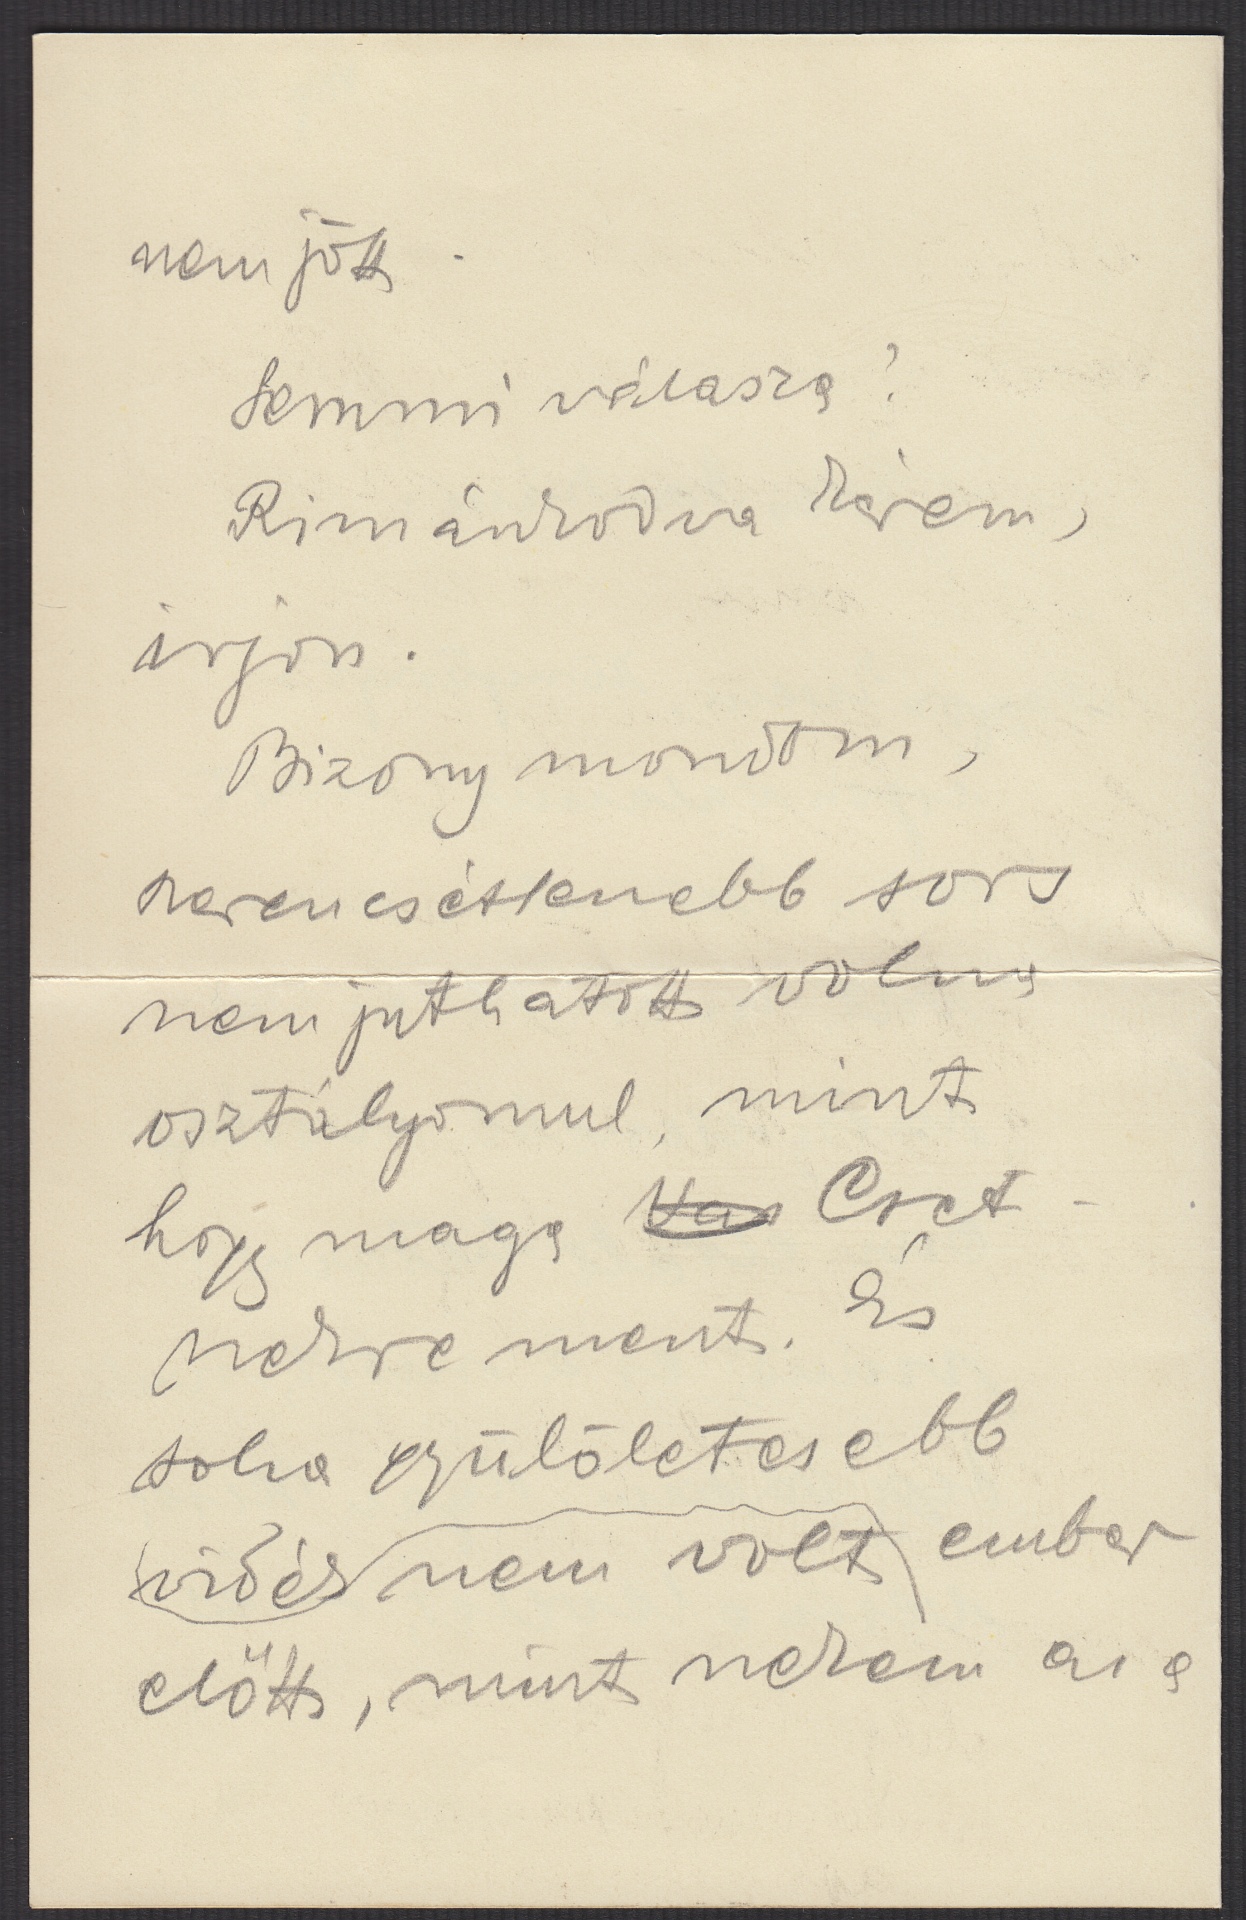 nem jött.
Semmi válasza?
Rimánkodva kérem,
irjon.
Bizony mondom,
szerencsétlenebb sors
nem juthatott volna
osztályomul, mint
hogy maga Cset-
nekre ment. És
soha gyülöletesebb
vidék nem volt ember
előtt, mint nekem az a